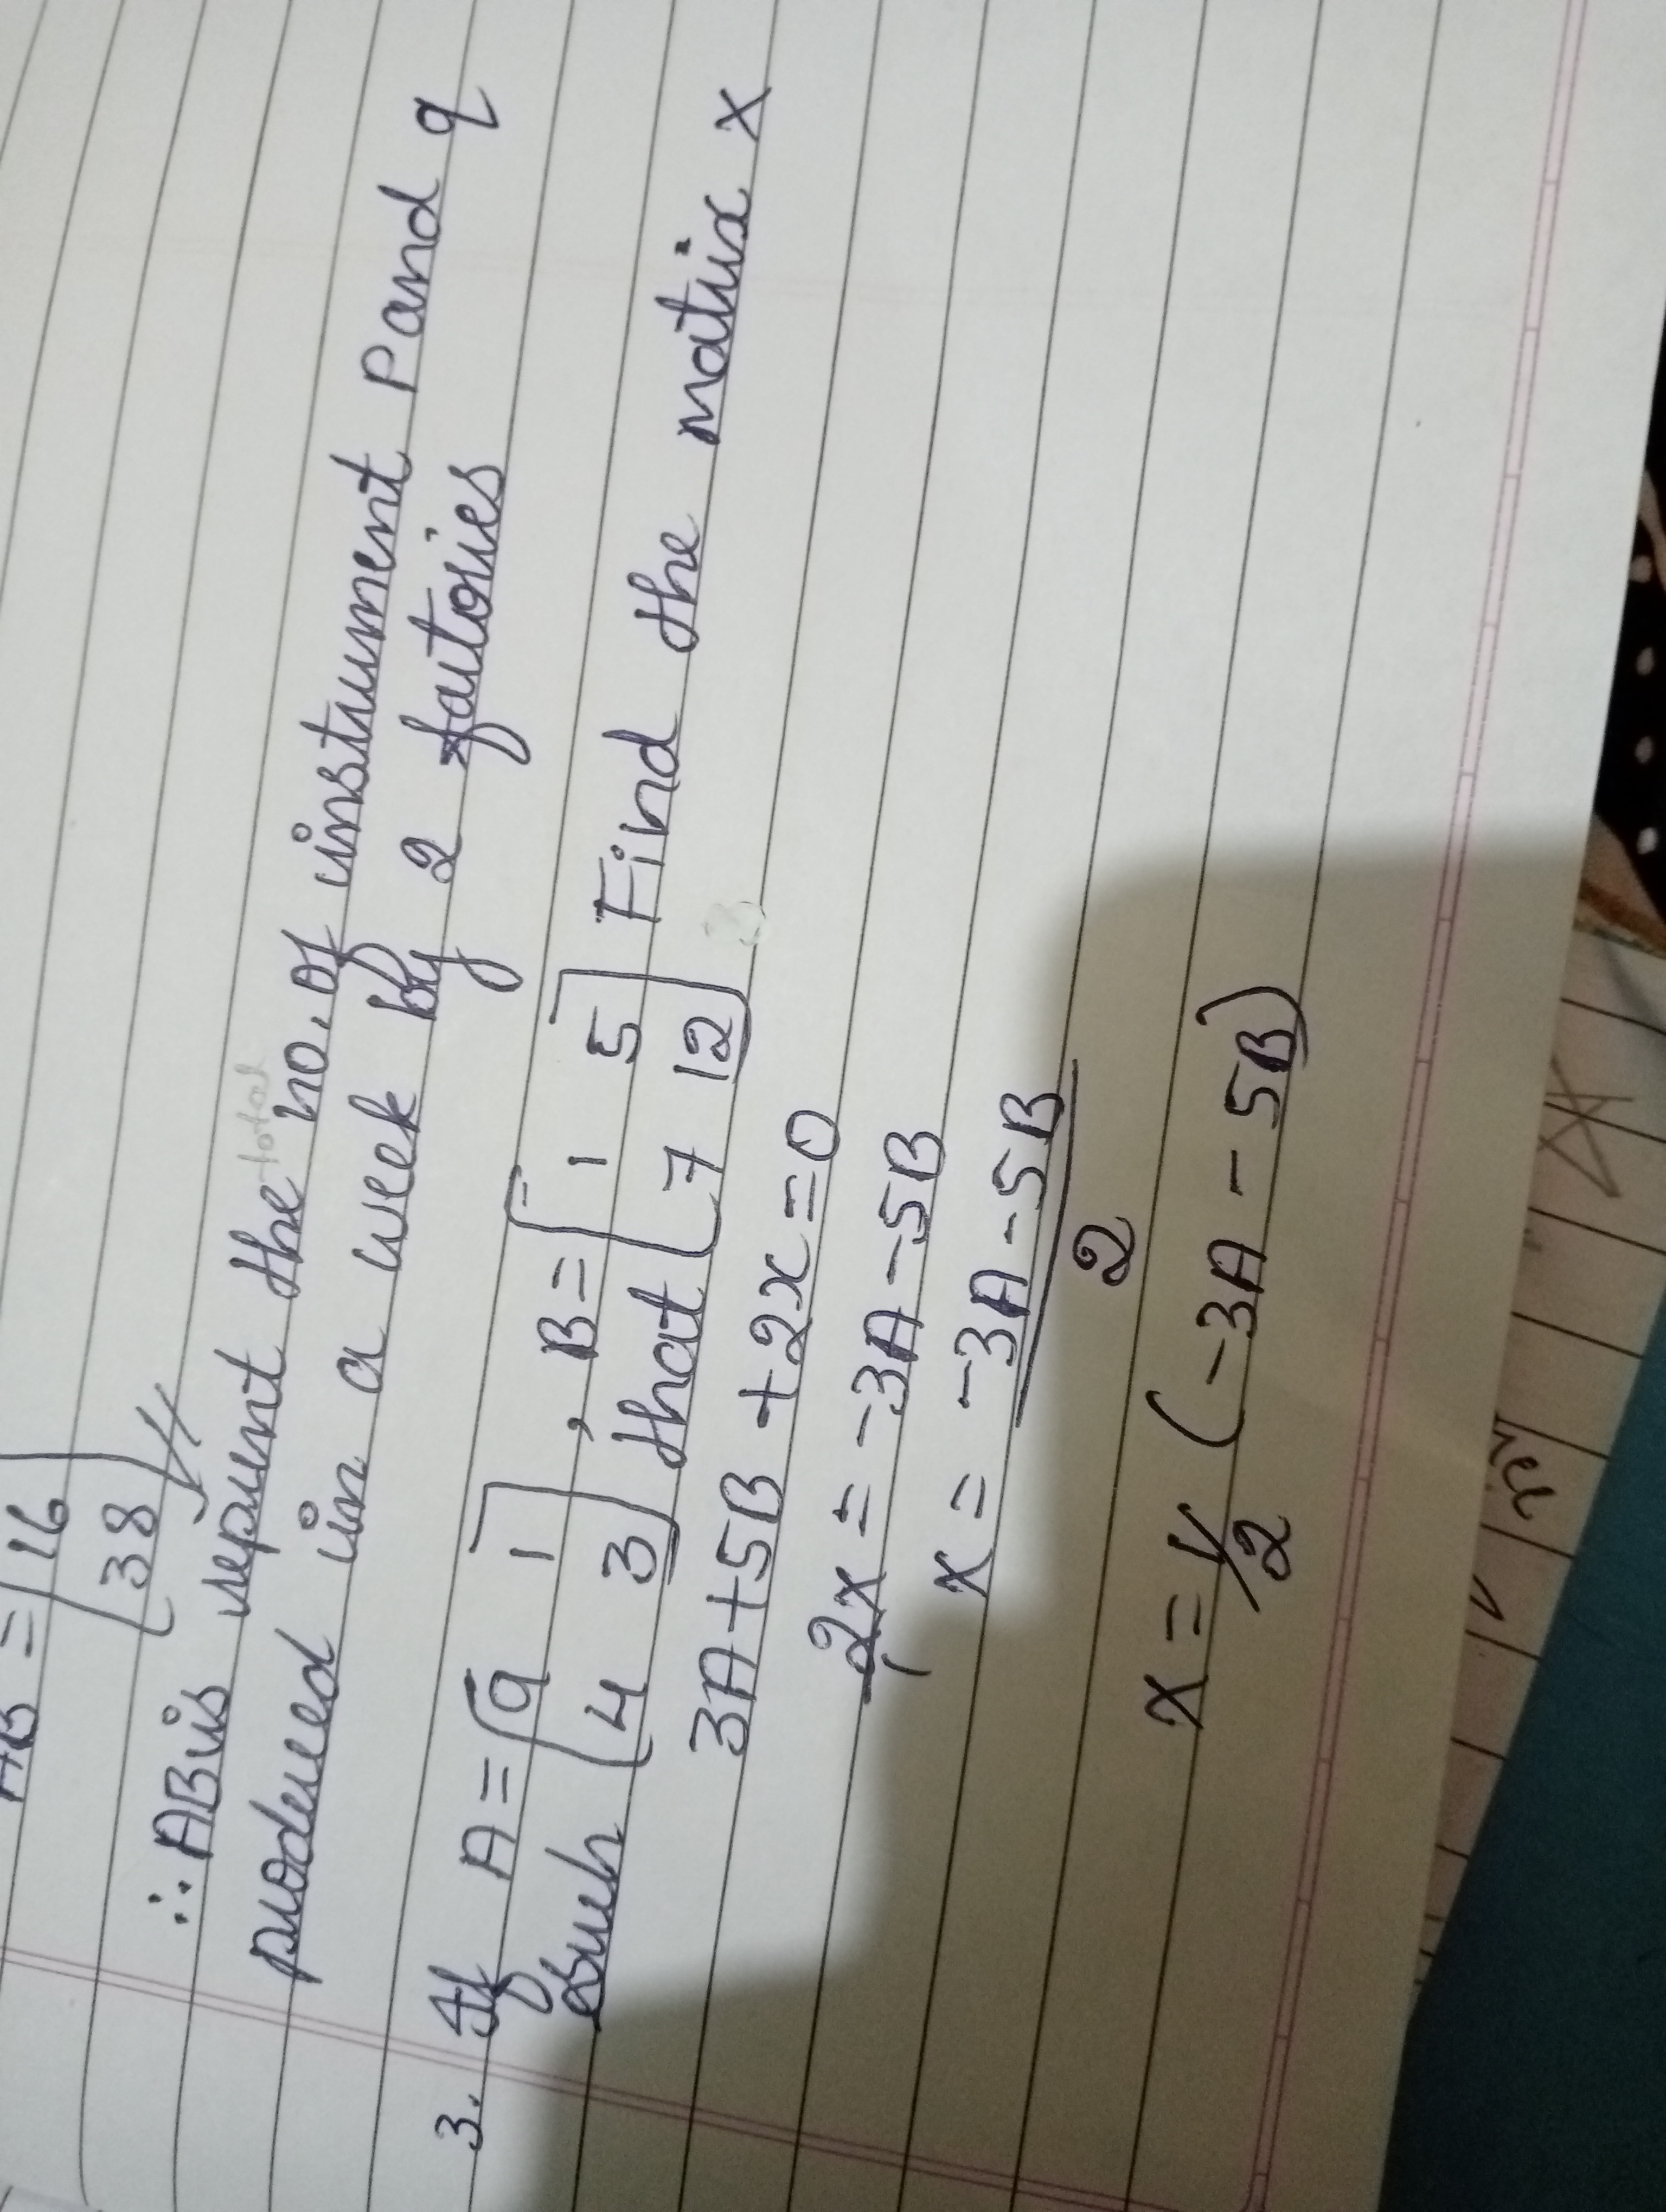 AB = [16
38]
∴ ABis repuent the no. of instument P and q
produced in a week by 2 fatories
3. If A = [9 1 , B = [1 5] Find the matrix x
such [4 3] that [7 12]
3A+5B+2x=0
2x = -3A-5B
x = -3A-5B
2
x = 1/2 (-3A-5B)